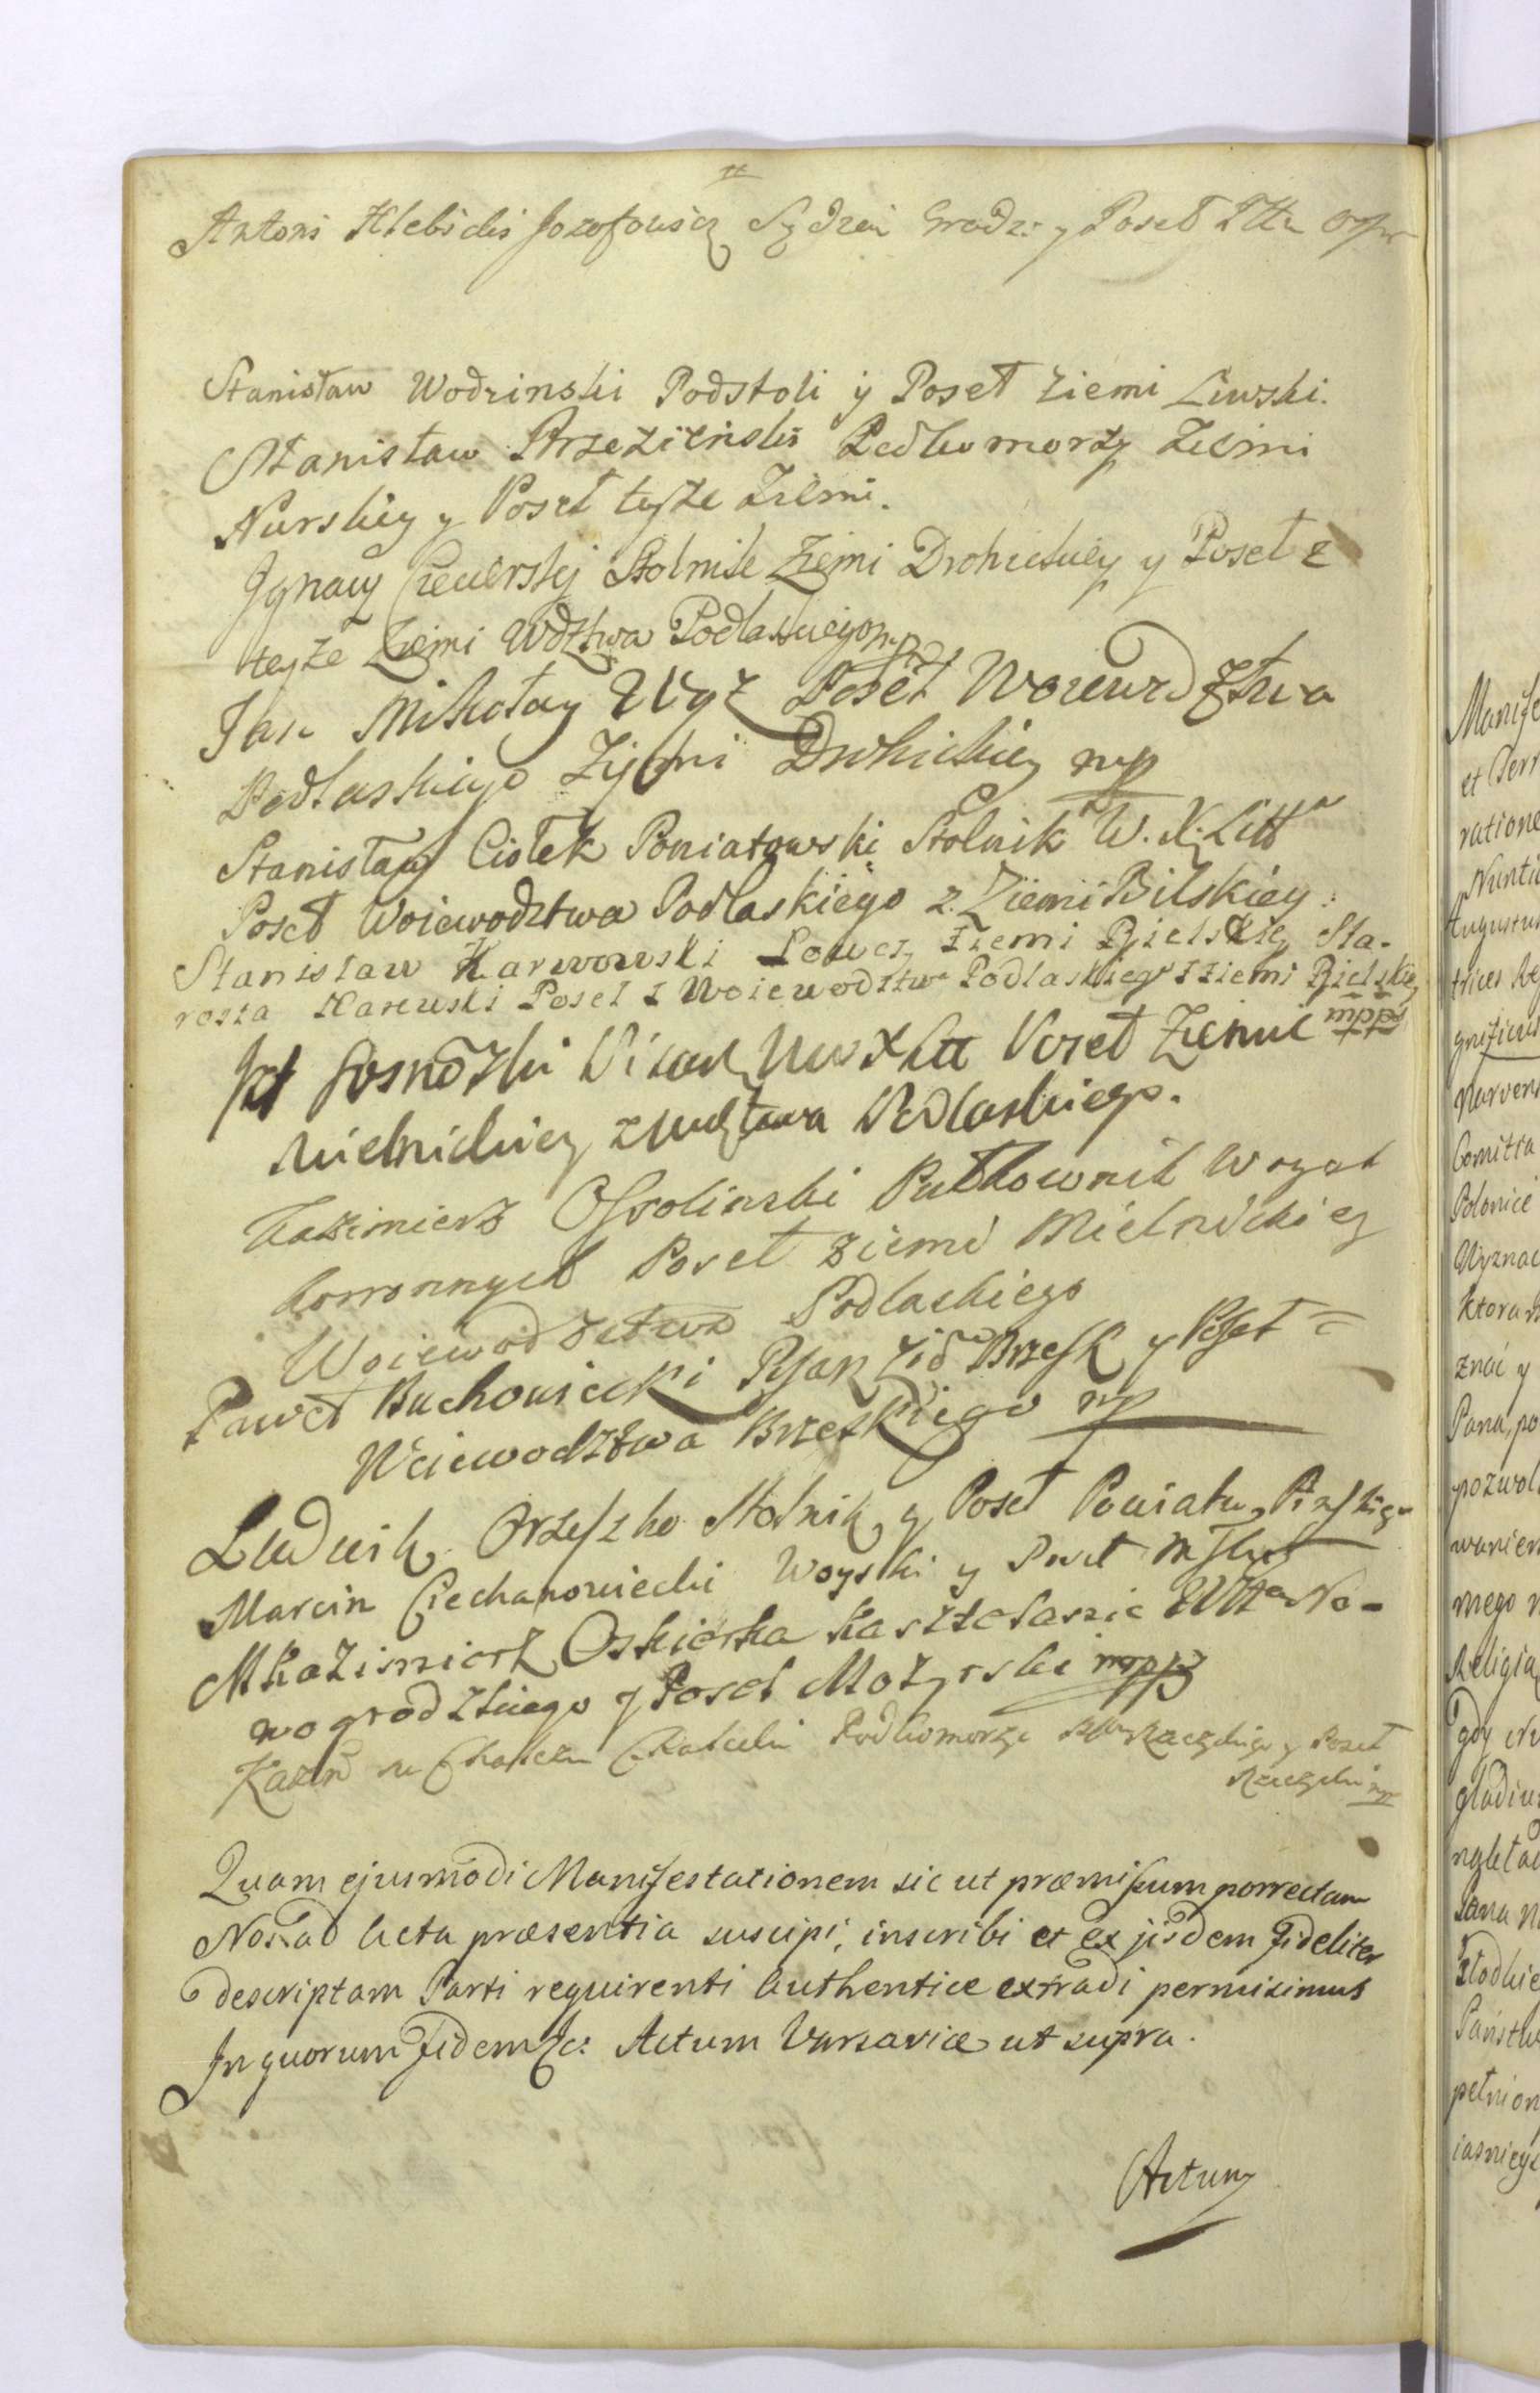 Antoni Hlebicki Jozefowicz Sędzia Grodz: y Poseł
Stanisław Wodzinski Podstoli y Poseł Ziemi Liwski.
Stanisław Przezdziński Podkomorzy Ziemi
Nurskiey y Poseł teyże Ziemi.
Ignacy Stolnik Ziemi Drohickiey y Poseł z
teyże Ziemi Wdztwa Podlaskiego mp
Jan Mikołay Węż Poseł Woiewodztwa
Podlaskiego Ziemi Drohickiey mp
Stanisław Ciołek Poniatowski Stolnik W. X. Litt
Poseł Woiewodztwa Podlaskiego z Ziemi Bilskiey
Stanisław Karwowski Łowcz: Ziemi Bielskiey Sta-
rosta Poseł z Woiewodztwa Podlaskiego z Ziemi Bielskiey
mpp
Sosnowski Pisarz W X Litt Poseł Ziemi
Mielnickiey z Wdztwa Podlaskiego.
Kazimierz Ossolinski Pułkownik Woysk
koronnych Poseł Ziemi Mielnickiey
Woiewodztwa Podlaskiego
Paweł Buchowiecki Pisarz Brzesk y Poseł =
Woiewodztwa Brzeskiego mp
Ludwik Orzeszko Stolnik y Poseł Powiatu Pinskiego
Marcin Ciechanowiecki Woyski y Poseł
M Kazimierz Oskierka Kasztelanic Wttwa No-
wogrodzkiego y Poseł Mozyrski mpp
Kazim Chalecki Podkomorzy Rzeczycki y Poseł
Rzeczycki mp
Quam ejusmodi Manifestationem sic ut præmissum porrectam
Nos ad Acta præsentia suscipi, inscribi et ex jisdem fideliter
descriptam Parti requirenti Authentice extradi permisimus
In quorum Fidem &c: Actum Varsaviæ ut supra.
Actum
Manife
et Terr
ratione
Nuntii
Augustus
gnificus
Comitia
Polonice
Wyznac
ktora
znać y
Pana, po
pozwol
mego
Religia
gdy
gladius
Państw
pełnion